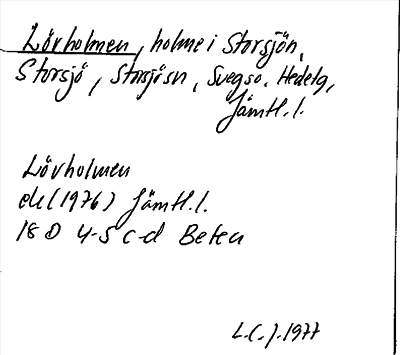 Lövholmen, holme i Storsjön,
Storsjö, Storsjö sn, Svegs o. Hedetg,
Jämtl. l.
Lövholmen
ek (1976) Jämtl. l.
18 D 4-5 c-d Beten
L. C. J. 1977